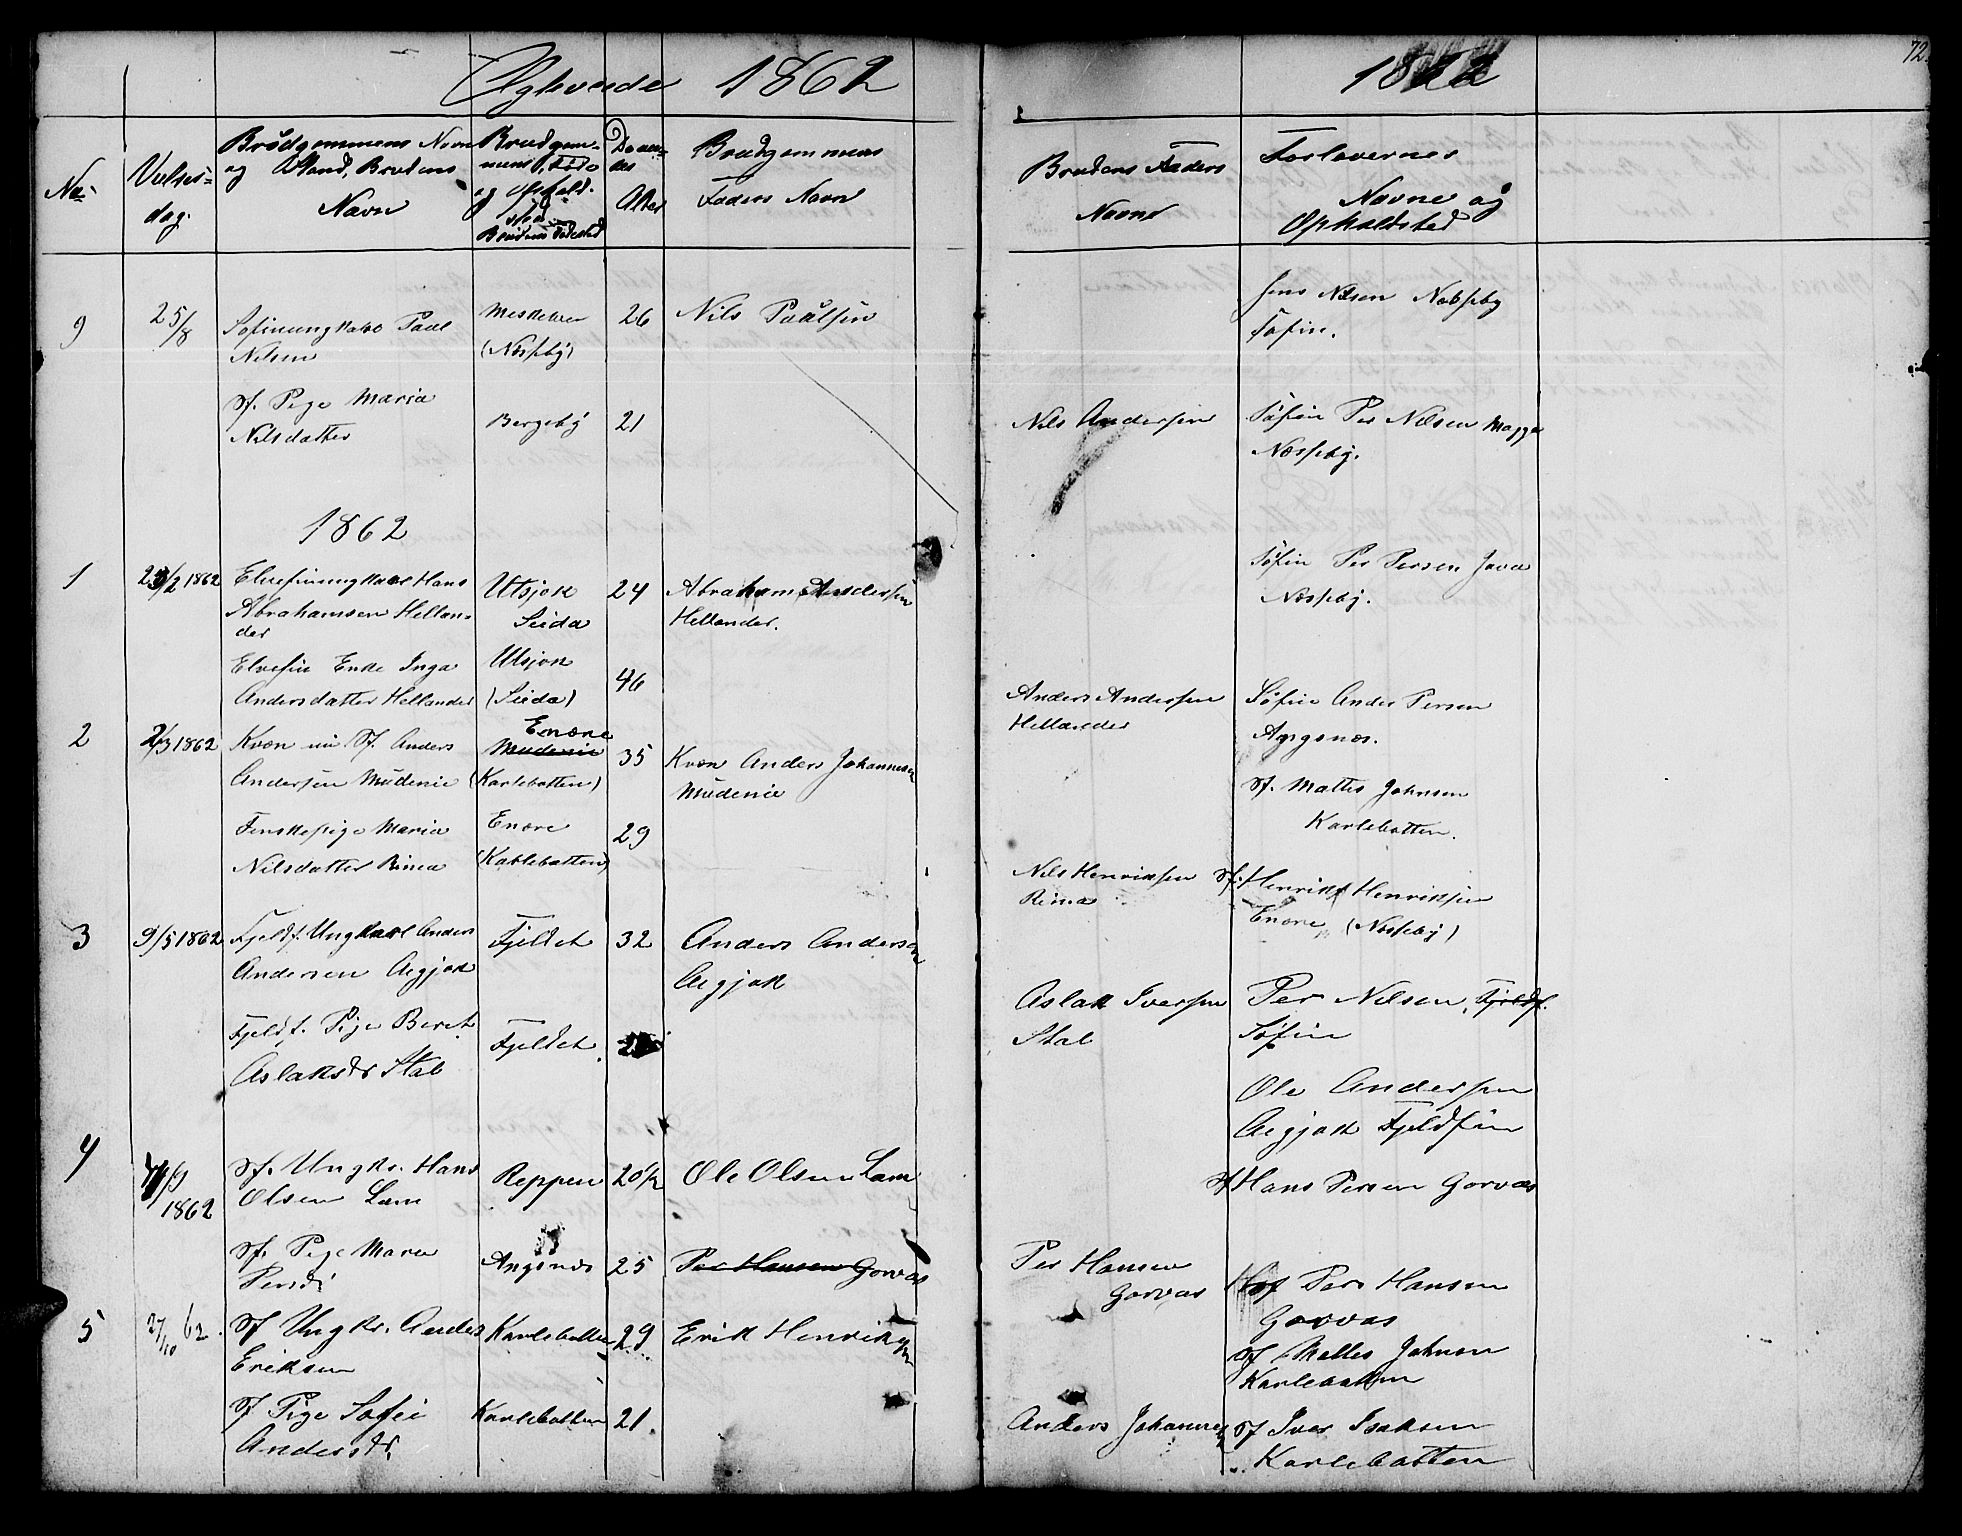 Ægteviede 1862
1862
72.
No.
Vielses=
dag.
Brudgommens Navn
og Stand, Brudens
Navn
Brudgom=
mens Føde
og Opholds
sted
Brudens Fødested
Deres
Alder
Brudgommens
Faders Navn
Brudens Faders
Navne
Forlovernes
Navne og
Opholdsted
9
25/8
Søfinungkarl Paul
Nilsen
Meskelven
(Næsseby)
26
Nils Paulsen
Jens Nilsen Næsseby
Søfin.
Sf. Pige Maria
Nilsdatter
Bergeby
21
Nils Andersen
Søfin Per Nilsen Magga
Næsseby.
1862
1
23/2 1862
Elvefinungkarl Hans
Abrahamsen Hellan=
der
Utsjok
Seida
24
Abraham Andersen
Hellander.
Søfin Per Persen Java
Næsseby.
Elvefin Enke Inga
Andersdatter Hellander
Utsjok
(Seida)
46
Anders Andersen
Hellander
Søfin Ander Persen
Angsnæs.
2
2/3 1862
Kvæn nu Sf. Anders
Andersen Mudenia
Enare
Mudenia
(Karlebotten)
35
Kvæn Anders Johannesen
Mudenia
Sf. Mattis Johnsen
Karlebotten.
Finskepige Maria
Nilsdatter Rima
Enare
(Karlebotten)
29
Nils Henriksen
Rima
Sf. Henrik Henriksen
Enare (Næsseby)
3
9/5 1862
Fjeldf. Ungkarl Anders
Andersen Aigjok
Fjeldet
32
Anders Andersen
Aigjok
Per Nilsen, Fjeldf.
Søfin
Fjeldf. Pige Beret
Aslaksdr Stab
Fjeldet
Aslak Iversen
Stab
Ole Andersen
Aigjok Fjeldfin
4
1862
Sf. Ungkr. Hans
Olsen Lam
Reppen
20 1/2
Ole Olsen Lam
Sf Hans Persen Gorvas
Sf. Pige Maria
Persdr
Angsnæs
25
Per Hansen Gorvas
Per Hansen
Gorvas
Sf Per Hansen
Gorvas
5
27/10 62.
Sf Ungkr. Anders
Eriksen
Karlebotten
29
Erik Henriksen
Sf Mattis Johnsen
Karlebotten
Sf Pige Sofie
Andersdr.
Karlebotten
21.
Anders Johannes
Sf Iver Isaksen
Karlebotten